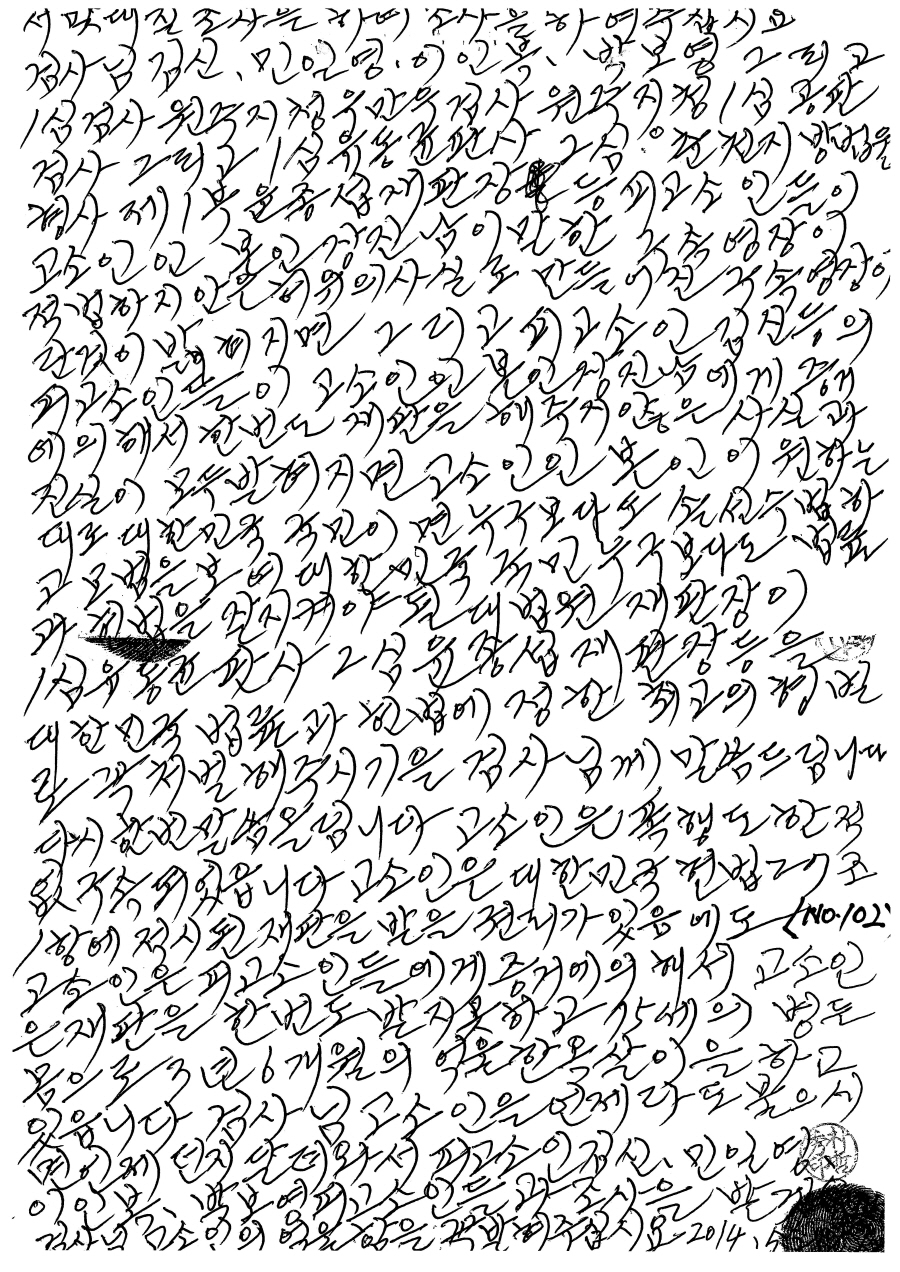 서 맞대질 조사를 하여 조사를 하여주십시요
검사님 김신, 민일영, 이인복, 박보영 그리고
1심 검사 원주지청 우만우검사, 원주지청 1심 공판
검사 그리고 1심 유동균판사 2심 춘천지방법원
형사 제1부 윤종섭재판장 등 피고소인들이
고소인인 본인 장진남이 말한 구속영장이
적법하지 안은 허위의 사실로 만들어진 구속영장이
란 것이 발켜지면 그리고 피고소인 김신등의
피고소인들이 고소인인 본인 장진남에게 증거
에 의해서 한번도 재판을 해주지 안은 사실과
진실이 모두 발켜지면 고소인인 본인이 원하는
대로 대한민국 국민이면 누구보다도 솔선수범하
고 모범을 보여 대한민국 국민 누구보다도 법률
과 헌법을 잘 지켜야 될 대법원 재판장이
1심 유동균 판사 2심 윤종섭 재판장 등을
대한민국 법률과 헌법에 정한 최고의 형벌
로 꼭 처벌해 주시기를 검사님께 말씀드립니다
다시 한번 말씀 올립니다 고소인은 폭행도 한적
없 구속되었읍니다 고소인은 대한민국 헌법 27조
1항에 적시된 재판을 받을 권리가 있음에도 (NO.102)
고소인은 피고소인들에게 증거에 의해서 고소인
은 재판을 한번도 받지 못하고 75세의 병든
몸으로 3년 6개월의 억울한 옥살이를 하고
있읍니다 검사님 고소인은 언제라도 불으시
면 언제 던지 달려와서 피고소인 김신, 민일영
이인복, 박보영 피고소인들과 조사를 받겠
검사님 고소인의 억울함을 해주십시요 2014.